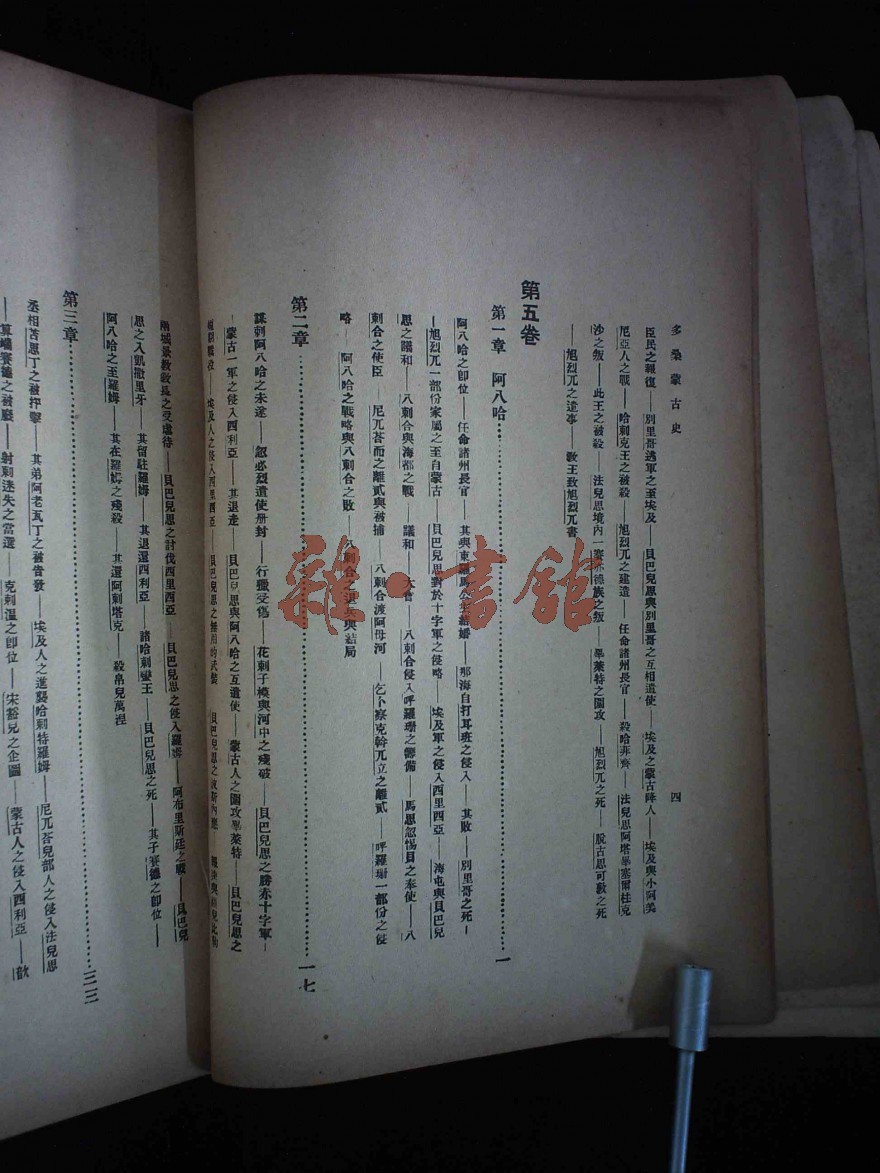 多桑蒙古史
四
臣民之報復——別里哥逃軍之至埃及——貝巴兒思與別里哥之互相遣使——埃及之蒙古降人——埃及與小阿美
尼亞人之戰——哈剌克王之被殺——旭烈兀之建造——任命諸州長官——殺哈非齊——法兒思阿塔畢塞爾柱克
沙之叛——此王之被殺——法兒思境內一賽亦德族之叛——畢萊特之圍攻——旭烈兀之死——脫古思可敦之死
——旭烈兀之遺事——教王致旭烈兀書
第五卷
第一章 阿八哈 一
阿八哈之即位——任命諸州長官——其與東羅馬公主結婚——那海自打耳班之侵入——其敗——別里哥之死—
—旭烈兀一部份家屬之至自蒙古——貝巴兒思對於十字軍之侵略——埃及軍之侵入西里西亞——海屯與貝巴兒
思之議和——八剌合與海都之戰——議和——大會——八剌合侵入呼羅珊之籌備——馬思忽惕貝之奉使——八
剌合之使臣——尼兀荅而之離貳與被捕——八剌合渡阿母河——乞卜察克斡兀立之離貳——呼羅珊一部份之侵
略——阿八哈之戰略與八剌合之敗——八剌合之退兵與結局
第二章 一七
謀刺阿八哈之未遂——忽必烈遣使册封——行獵受傷——花剌子模與河中之殘破——貝巴兒思之勝赤十字軍—
—蒙古一軍之侵入西利亞——其退走——貝巴兒思與阿八哈之互遣使——蒙古人之圍攻畢萊特——貝巴兒思之
——埃及人之侵入西里西亞——貝巴兒思之
兩城景教教長之受虐待——貝巴兒思之討伐西里西亞——貝巴兒思之侵入羅姆——阿布里斯廷之戰——貝巴兒
思之入凱撒里牙——其留駐羅姆——其退還西利亞——諸哈剌蠻王——貝巴兒思之死——其子賽德之即位——
阿八哈之至羅姆——其在羅姆之殘殺——其還阿剌塔克——殺帛兒萬涅
第三章 三三
丞相苫思丁之被抨擊——其弟阿老瓦丁之被告發——埃及人之進襲哈剌特羅姆——尼兀荅兒部人之侵入法兒思
——算端賽德之被廢——射剌迷失之當選——克剌溫之即位——宋豁兒之企圖——蒙古人之侵入西利亞——歆